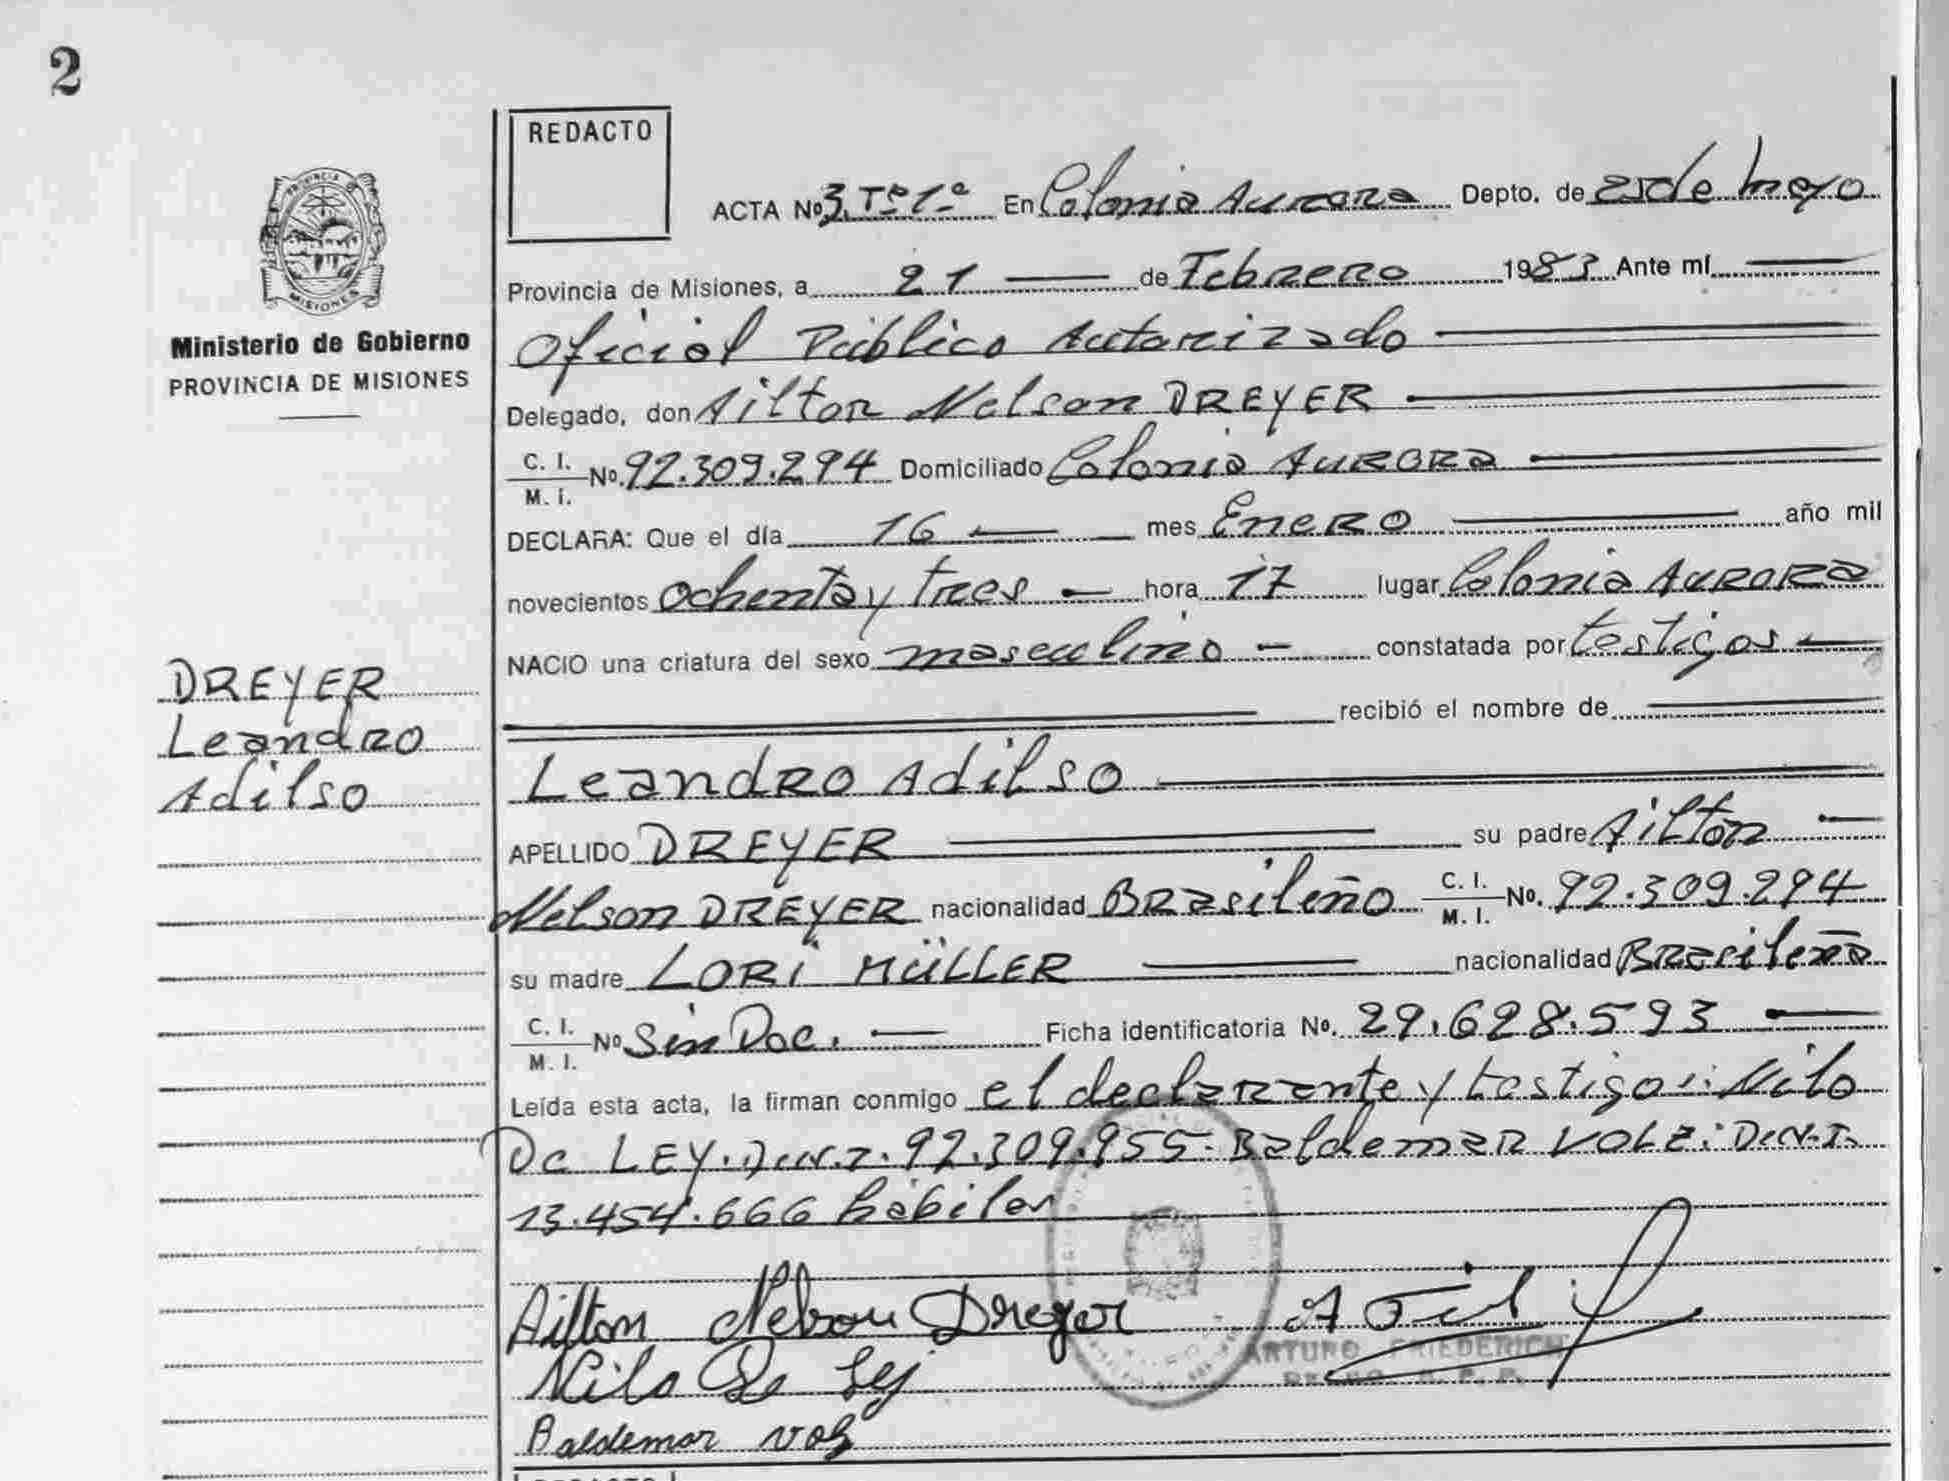 2
REDACTO
ACTA Nº 3. Tº 1º En Colonia Aurora Depto. de 25 de Mayo
Provincia de Misiones, a 21 de Febrero 1983 Ante mí
Oficial Público Autorizado
Delegado, don Ailton Nelson DREYER
C. I. M. I. Nº. 92.309.294 Domiciliado Colonia AURORA
DECLARA: Que el día 16 mes Enero año mil
novecientos Ochenta y tres hora 17 lugar Colonia AURORA
NACIO una criatura del sexo masculino constatada por testigos
recibió el nombre de
Leandro Adilso
APELLIDO DREYER su padre Ailton
Nelson DREYER nacionalidad Brasileño C. I. M. I. Nº. 92.309.294
su madre LORI MÜLLER nacionalidad Brasileña
C. I. M. I. Nº Sin Doc. Ficha identificatoria Nº. 29.628.593
Leída esta acta, la firman conmigo el declarante y testigos: Nilo
De LEY. D.N.I. 92.309.955. Baldemar VOLZ: D.N.I.
13.454.666 hábiles
Ailton Nelson Dreyer
ARTURO FRIEDERICH
Nilo De Lej
Baldemar Volz
PROVINCIA
MISIONES
Ministerio de Gobierno
PROVINCIA DE MISIONES
DREYER
Leandro
Adilso
REDACTO